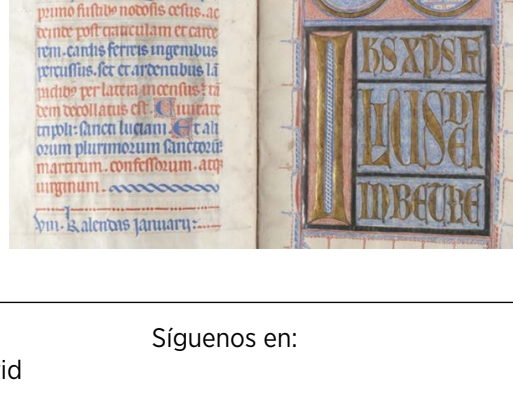 primo fustibꝯ nodosis cesus. ac
deinde post craticulam et carce
rem. cardis ferreis ingentibus
percussus. set et ardentibus lā
padibꝯ per latera incensus: tā
dem decollatus est. Ciuitate
tripoli: sancti luciani. Et ali
orum plurimorum sanctorū
martirum. confessorum. atqꝫ
uirginum.
viii. Kalendas Ianuarij:
IHS XPS FI
LIUS DEI
IN BETLE
Síguenos en:
id